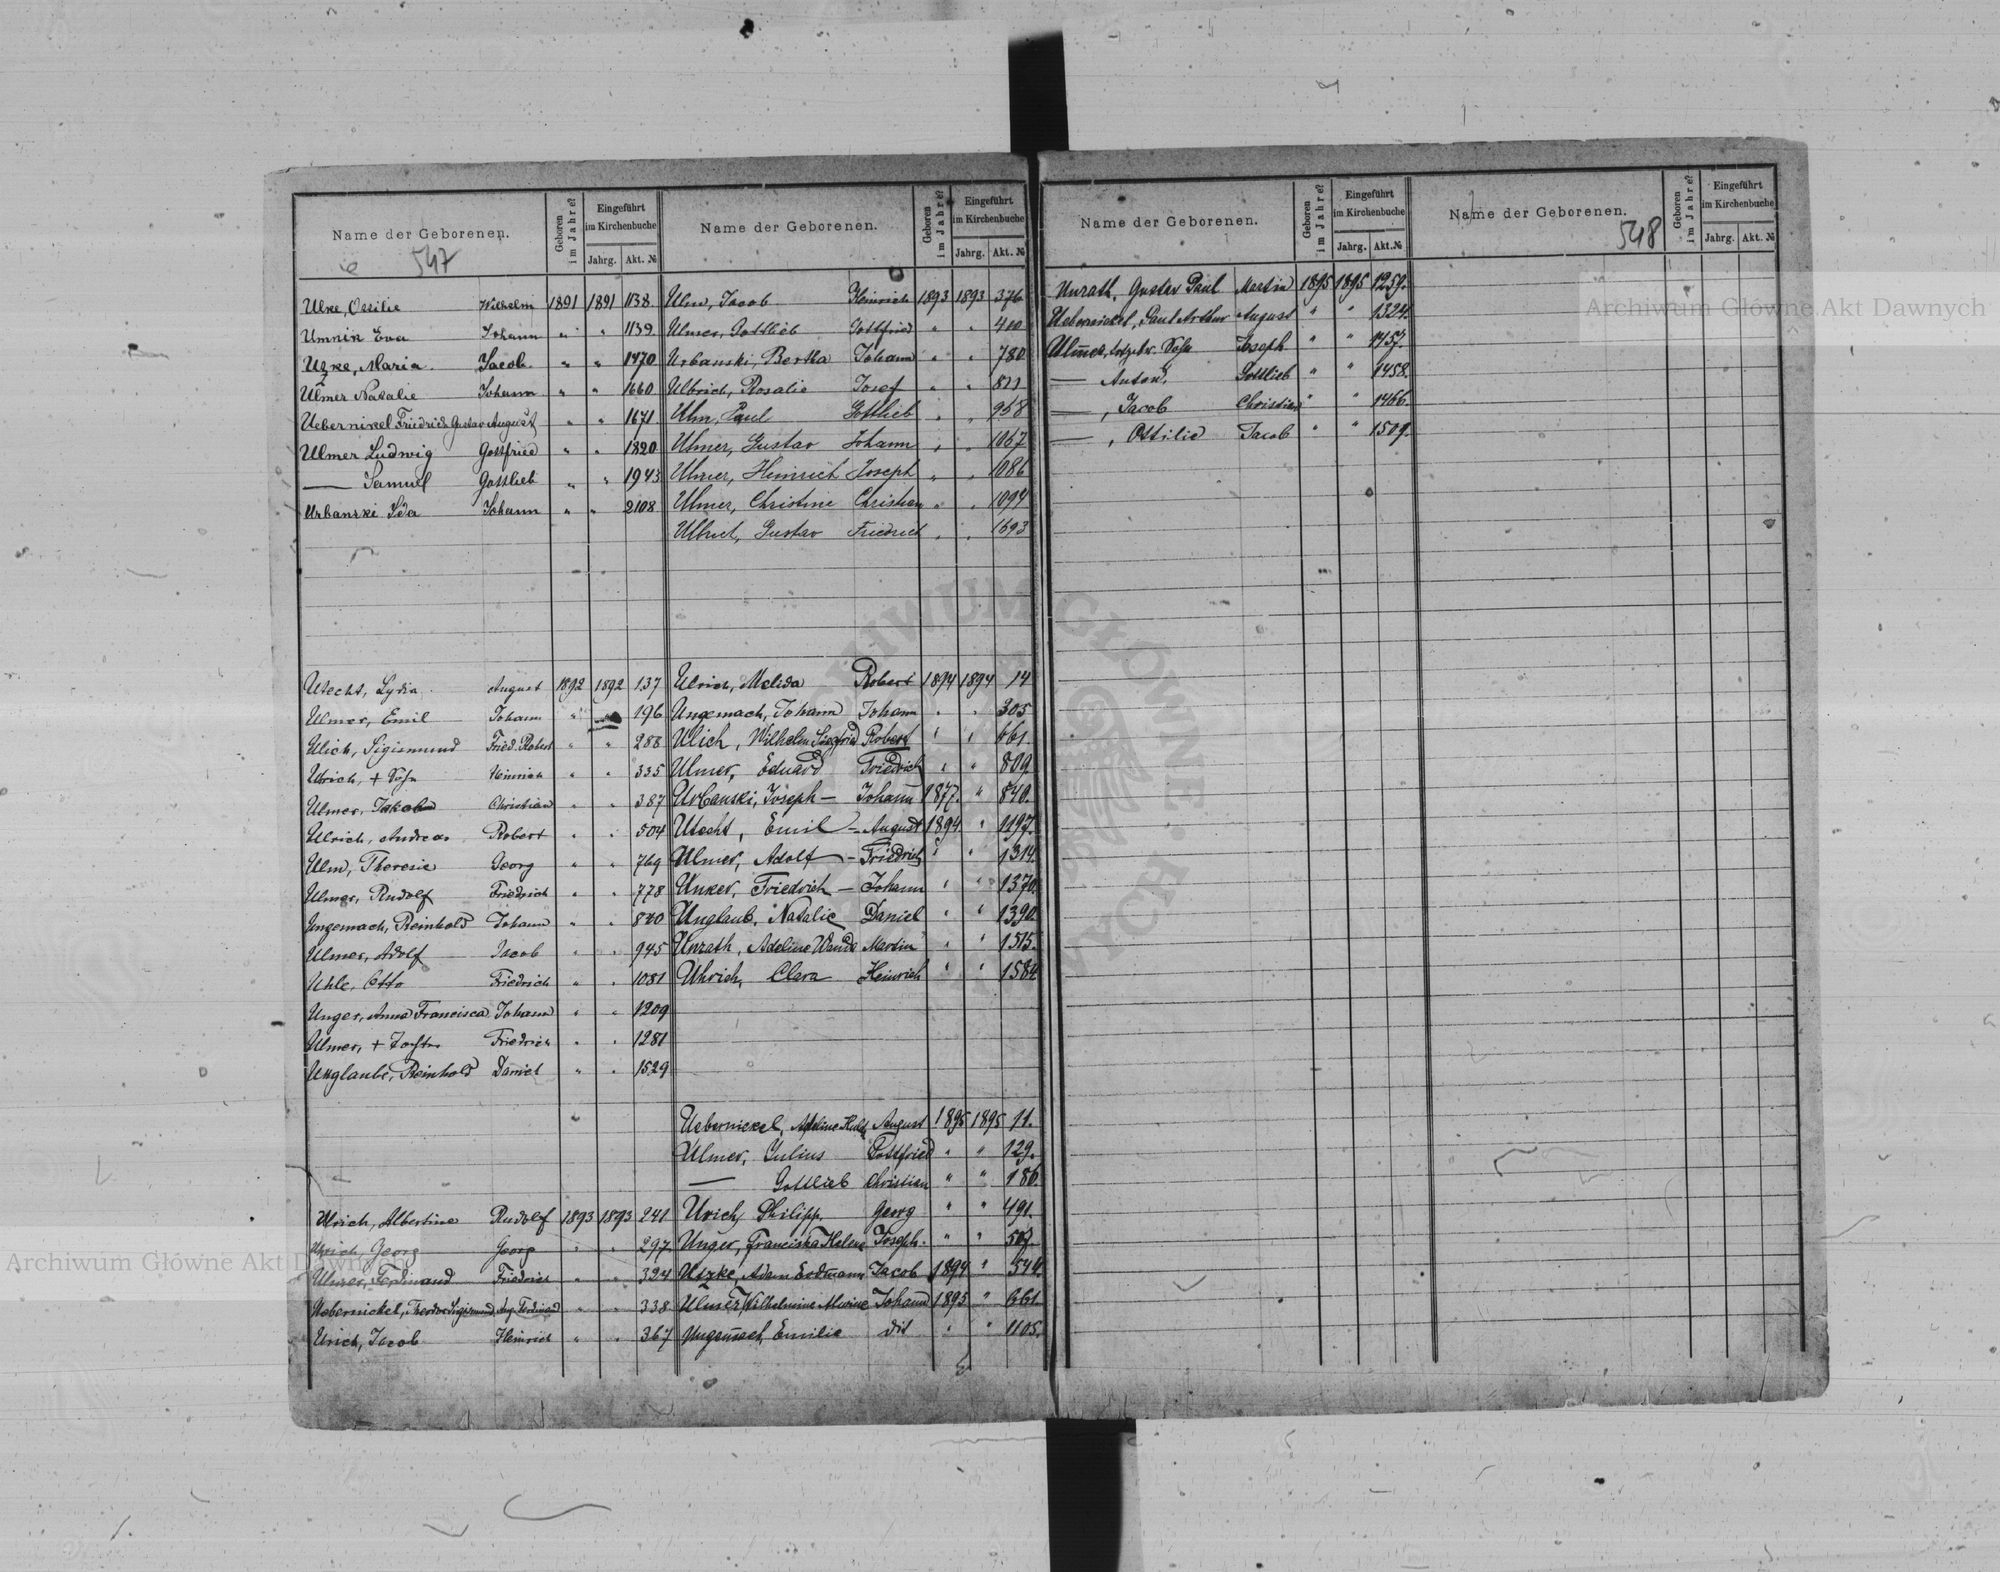 Name der Geborenen.
Geboren im Jahre?
Eingeführt im Kirchenbuche
Jahrg. Akt. №
547
Ulke, Ottilie Wilhelm 1891 1891 1138
Umnik Eva Johann " " 1139
Uzke, Maria Jacob " " 1470
Ulmer Natalie Johann " " 1660
Uebernikel Friedrich Gustav August " " 1671
Ulmer Ludwig Gottfried " " 1820
— Samuel Gottlieb " " 1943
Urbanski Ida Johann " " 2108
Utecht, Lydia August 1892 1892 137
Ulmer, Emil Johann " 196
Ulich, Sigismund Fried. Robert " " 288
Ulrich, + Sohn Heinrich " " 335
Ulmer, Christian " " 387
Ulrich, Andreas Robert " " 504
Ulm, Theresie Georg " " 769
Ulmer, Rudolf Friedrich " " 778
Ungemach, Reinhold Johann " " 820
Ulmer, Adolf Jacob " " 945
Uhle, Otto Friedrich " " 1081
Unger, Anna Francisca Johann " " 1209
Ulmer, + Tochter Friedrich " " 1281
Unglaube, Reinhold Daniel " " 1529
Ulrich, Albertine Rudolf 1893 1893 241
Georg Georg " " 297
Ulmer, Ferdinand Friedrich " " 324
Uebernickel, Sigismund, Aug. Ferdinand " " 338
Urich, Jacob Heinrich " " 367
Name der Geborenen.
Geboren im Jahre?
Eingeführt im Kirchenbuche
Jahrg. Akt. №
Ulm, Jacob Heinrich 1893 1893 376
Ulmer, Gottlieb Gottfried " " 400
Urbanski, Bertha Johann " " 780
Ulbrich, Rosalie Josef " " 811
Ulm, Paul Gottlieb " " 958
Ulmer, Gustav Johann " " 1067
Ulmer, Heinrich Joseph " " 1086
Ulmer, Christine Christian " " 1094
Ulbrich, Gustav Friedrich " " 1693
Ulrich, Melida Robert 1894 1894 14
Ungemach, Johann Johann " " 305
Ulich, Wilhelm Siegfried Robert " " 661.
Ulmer, Eduard Friedrich " " 809
Urbanski, Joseph — Johann 1877. " 840.
Utecht, Emil — August 1894 " 1197.
Ulmer, Adolf — Friedrich " " 1314.
Unker, Friedrich — Johann " " 1370.
Unglaub, Natalie Daniel " " 1390
Unrath, Adeline Wanda Martin " " 1515.
Uhrich, Clara Heinrich " " 1584
Uebernickel, Adeline August 1895 1895 11.
Ulmer, Julius Gottfried " " 129.
— Gottlieb Christian " " 186.
Urich, Philipp Georg " " 491.
Unger, Franciska Helene Joseph. " "
Utzke, Adam Erdmann Jacob 1894 " 544.
Ulmer, Wilhelmine Alwine Johann 1895 " 661
Ungemach, Emilie dit " " 1105.
Name der Geborenen.
Geboren im Jahre?
Eingeführt im Kirchenbuche
Jahrg. Akt. №
Unrath, Gustav Paul Martin 1895 1895 1259.
Uebernickel, Paul Arthur August " " 1324.
Ulmer, todgeb. Sohn Joseph " " 1457.
— Anton, Gottlieb " " 1458.
—, Jacob Christian " " 1466.
—, Ottilie Jacob " " 1509.
Name der Geborenen.
548
Geboren im Jahre?
Eingeführt im Kirchenbuche
Jahrg. Akt. №
Archiwum Główne Akt Dawnych
Archiwum Główne Akt Dawnych